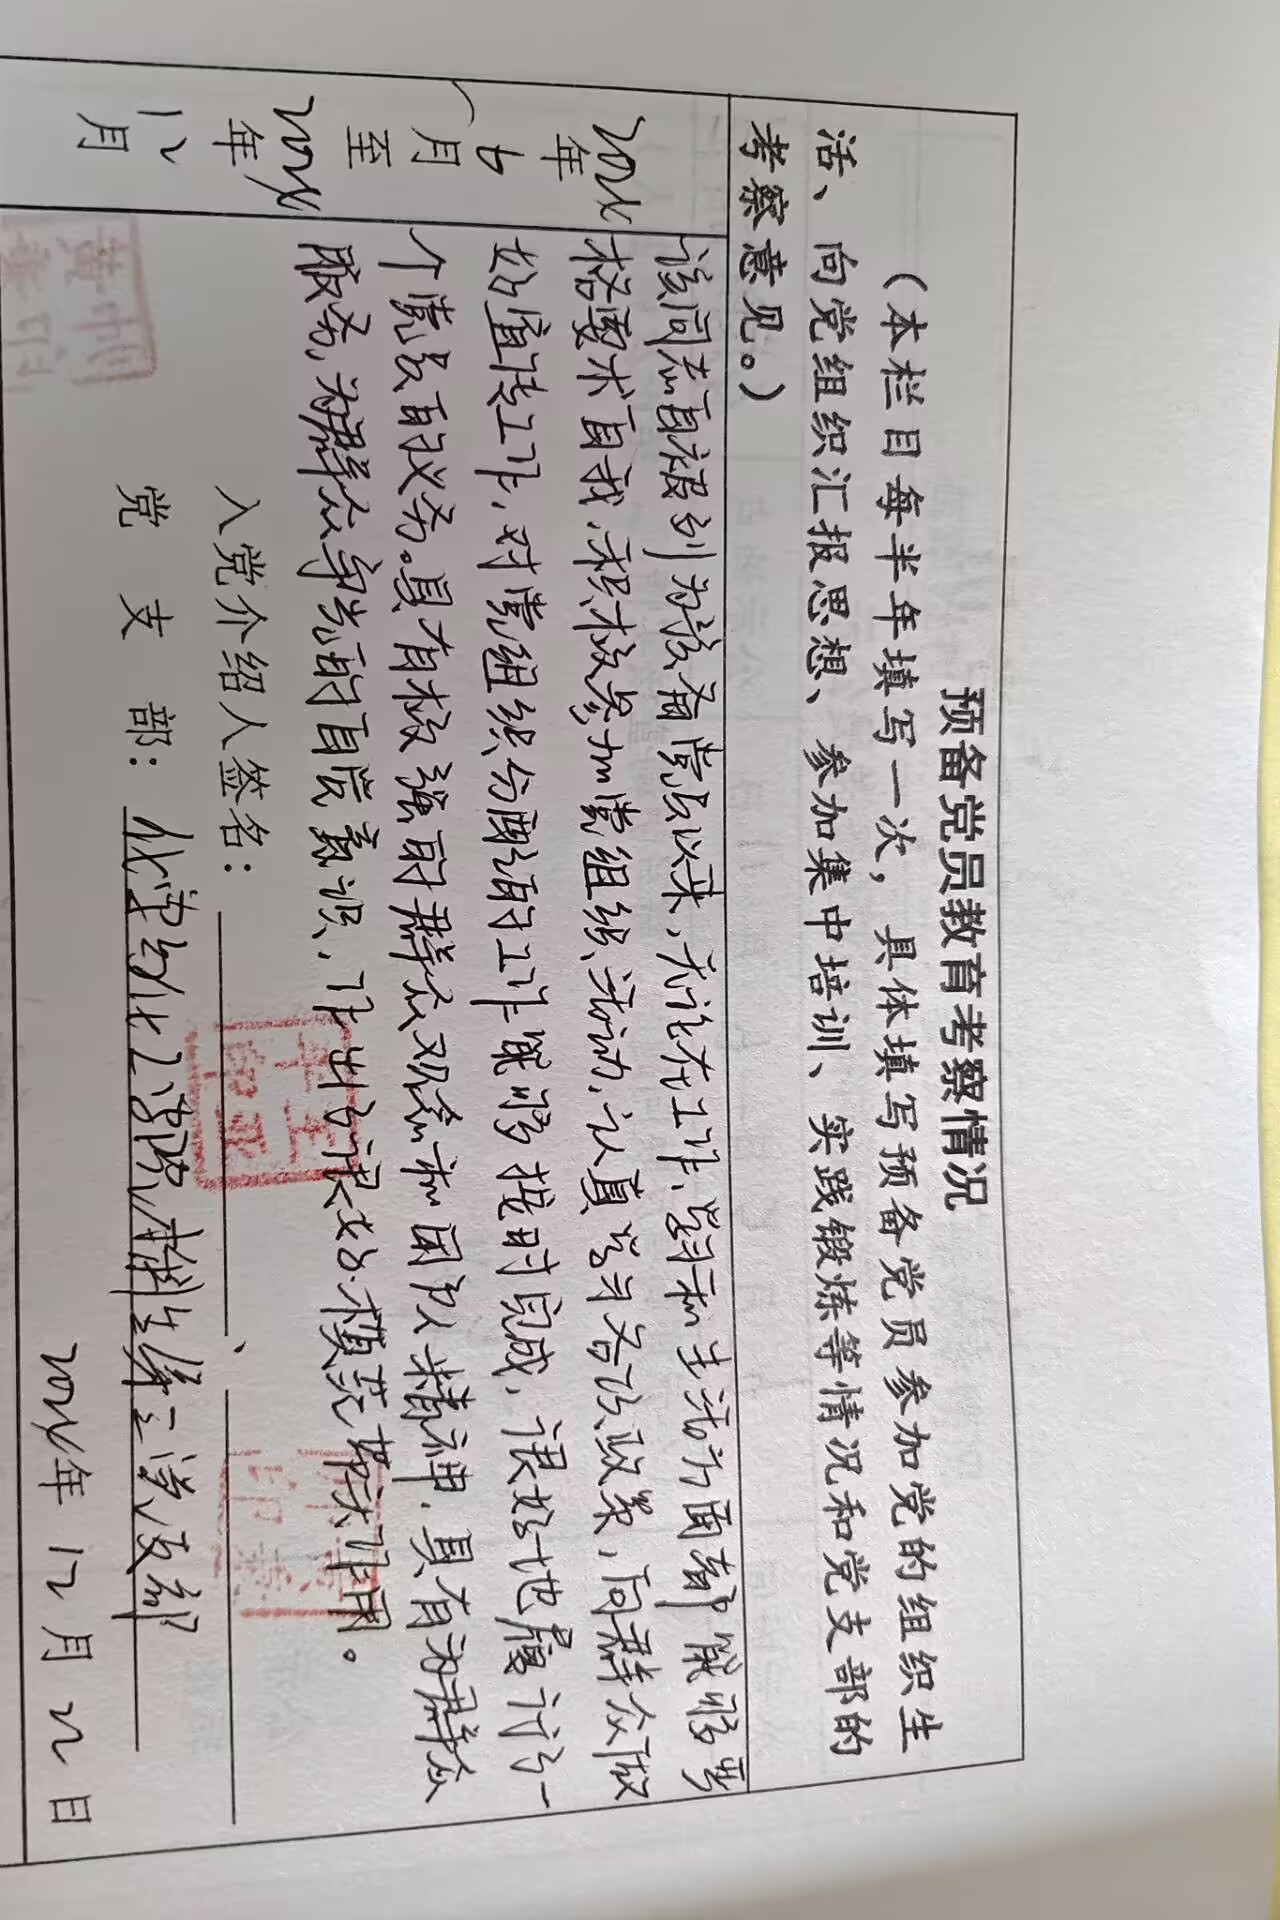 预备党员教育考察情况
（本栏目每半年填写一次，具体填写预备党员参加党的组织生
活、向党组织汇报思想、参加集中培训、实践锻炼等情况和党支部的
考察意见。）
年
6
月
至
年
12
月
该同志自被列为预备党员以来，无论在工作、学习和生活方面都能够严
格要求自我，积极参加党组织活动，认真学习各项政策，向群众做
好宣传工作，对党组织分配的工作能够按时完成，很好地履行了一
个党员的义务。具有极强的群众观念和团队精神，具有为群众
服务，为群众争光的自觉意识，作出了很好模范带头作用。
入党介绍人签名：
、
党 支 部：
化学与化工学院 研究生第二党支部
年 12 月 2 日